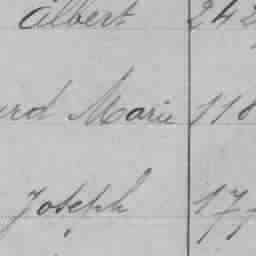 Albert 242
urd Marie 118
Joseph 177